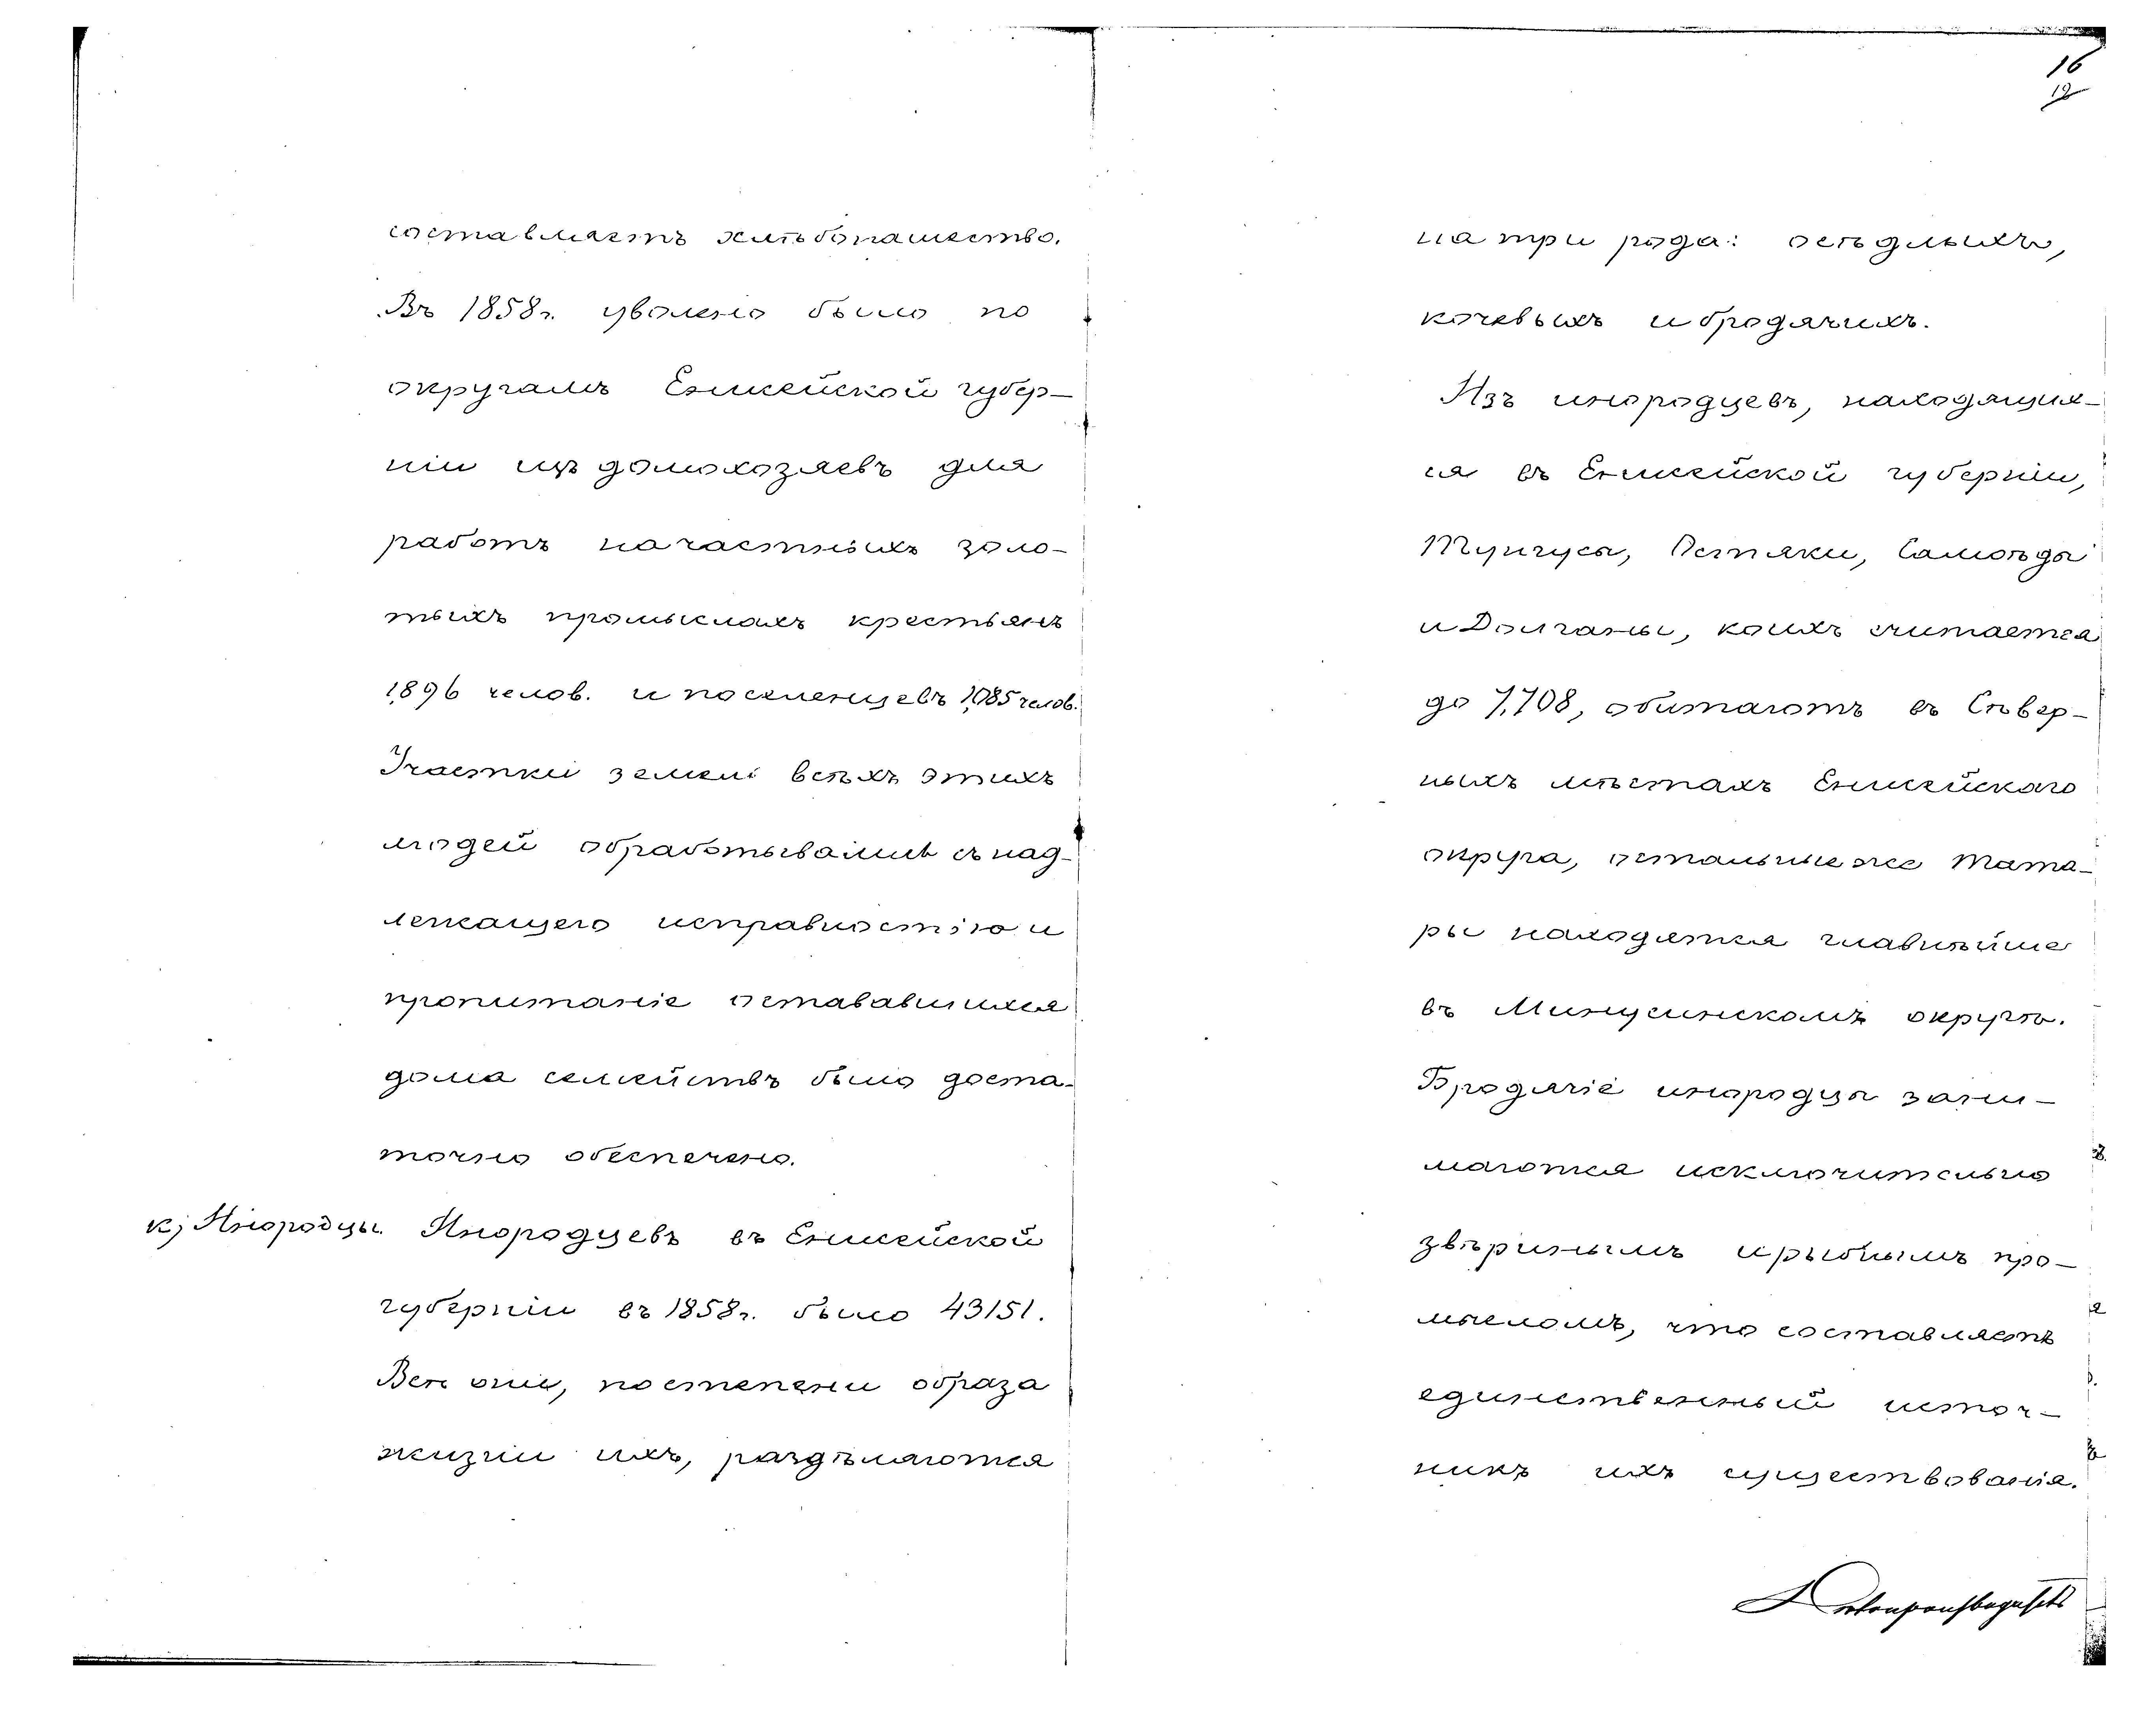 составляетъ хлѣбопашество.
Въ 1858г. уволено было по
округамъ Енисейской губер-
ніи изъ домохозяевъ для
работъ на частныхъ золо-
тыхъ промыслахъ крестьянъ
1,896 челов. и поселенцевъ 1,085 челов.
Участки земли всѣхъ этихъ
людей обработывались съ над-
лежащего исправностію и
пропитаніе остававшихся
дома семействъ было доста-
точно обеспечено.
к) Инородцы. Инородцевъ въ Енисейской
губерніи въ 1858г. было 43151.
Всѣ они, по степени образа
жизни ихъ, раздѣляются
16
12
на три рода: осѣдлыхъ,
кочевыхъ и бродячихъ.
Изъ инородцевъ, находящих-
ся въ Енисейской губерніи,
Тунгусы, Остяки, Самоѣды
и Долганы, коихъ считается
до 7,708, обитаютъ въ Сѣвер-
ныхъ мѣстахъ Енисейскаго
округа, остальные же Тата-
ры находятся главнѣйше
въ Минусинскомъ округѣ.
Бродячіе инородцы зани-
маются исключительно
звѣринымъ и рыбнымъ про-
мысломъ, что составляетъ
единственный источ-
никъ ихъ существованія.